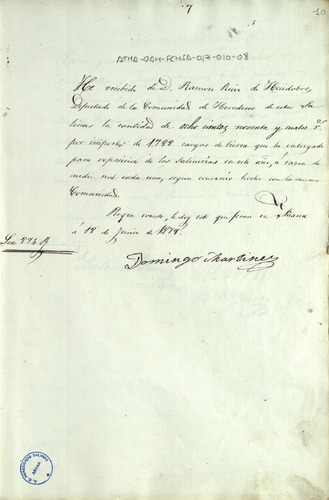 7
10
ATHA-DAH-FCHSA-017-010-08
He recibido de D. Ramon Ruiz de Huidobro,
Diputado de la Comunidad de Herederos de estas Sa-
linas la cantidad de ocho cientos noventa y cuatro r.s
por importe de 1788 cargas de tierra que ha entregado
para reparacion de las Salinerias en este año, á razon de
medio real cada una, segun convenio hecho con la misma
Comunidad.
Y que conste, le doy este que firmo en Añana
á 12 de Junio de 1878.
Son 894 R
Domingo Martinez